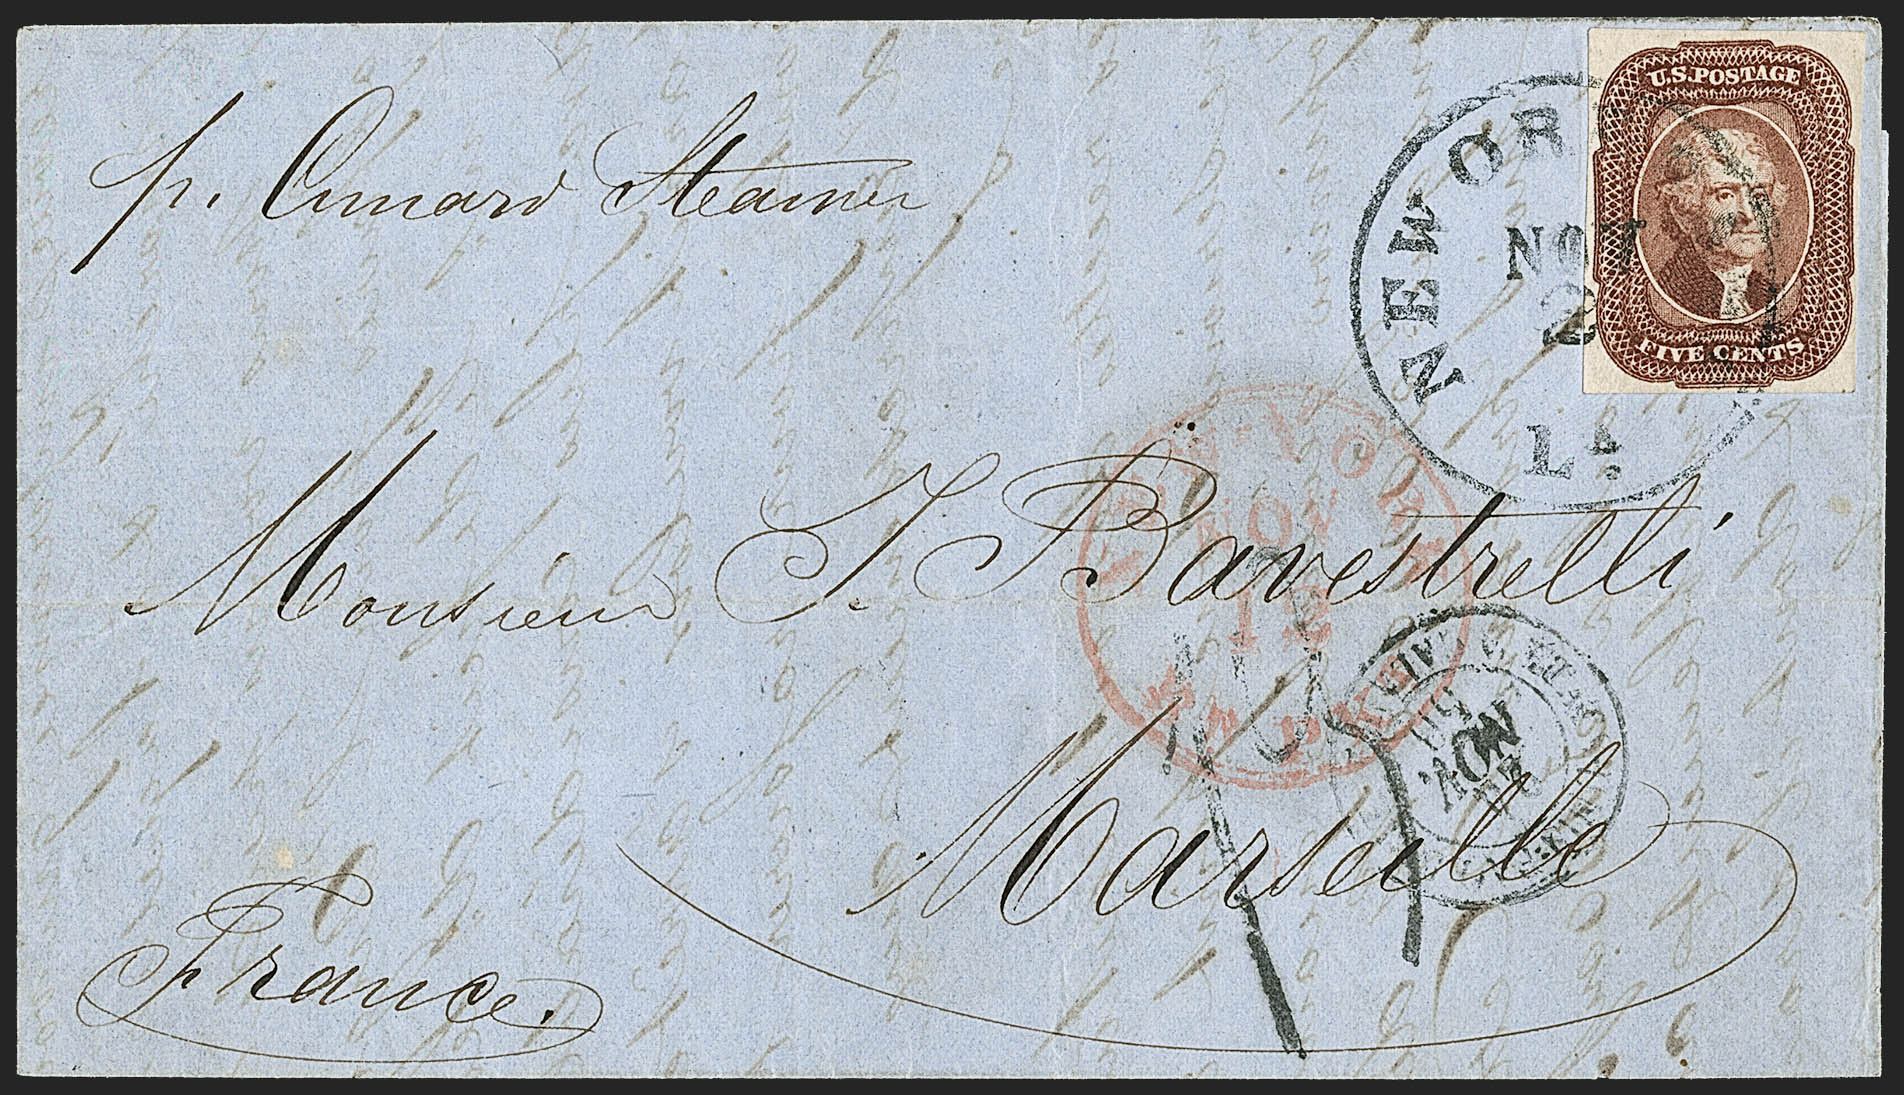 p. Cunard Steamer
U.S. POSTAGE
FIVE CENTS
NEW OR
NOV
2
La.
NEW-YORK
NOV
12
BR. PKT
Monsieur J. Bavestrelli
Marseille
France.
NOV.